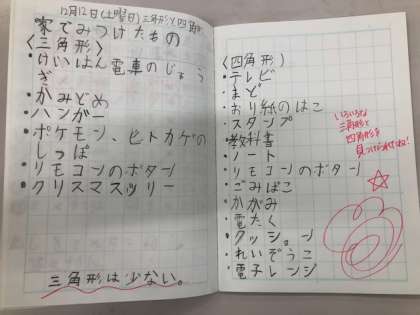 12月12日(土曜日)三角形と四角形
家でみつけたもの
〈三角形〉
・けいはん電車のじょう
ぎ
・かみどめ
・ハンガー
・ポケモン、ヒトカゲの
しっぽ
・リモコンのボタン
・クリスマスツリー
三角形は少ない。
〈四角形〉
・テレビ
・まど
・おり紙のはこ
・スタンプ
・教科書
・ノート
・リモコンのボタン
・ごみばこ
・かがみ
・電たく
・クッション
・れいぞうこ
・電子レンジ
いろいろな
三角形と
四角形を
見つけられたね!